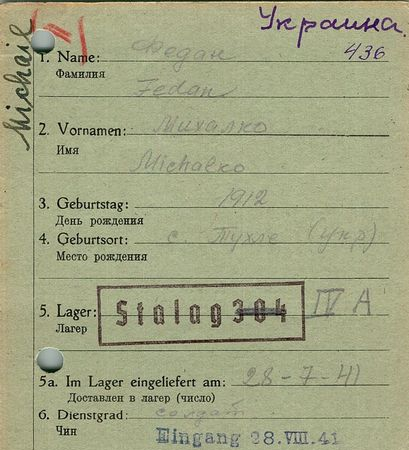 Michail
II
Украина.
436
1. Name: Федан
Фамилия
Fedan
2. Vornamen: Михалко
Имя
Michalko
3. Geburtstag: 1912
День рождения
4. Geburtsort: с. Тухле (укр)
Место рождения
5. Lager: Stalag 304 IV A
Лагер
5a. Im Lager eingeliefert am: 28-7-41
Доставлен в лагер (число)
6. Dienstgrad: солдат
Чин
Eingang 28.VIII.41